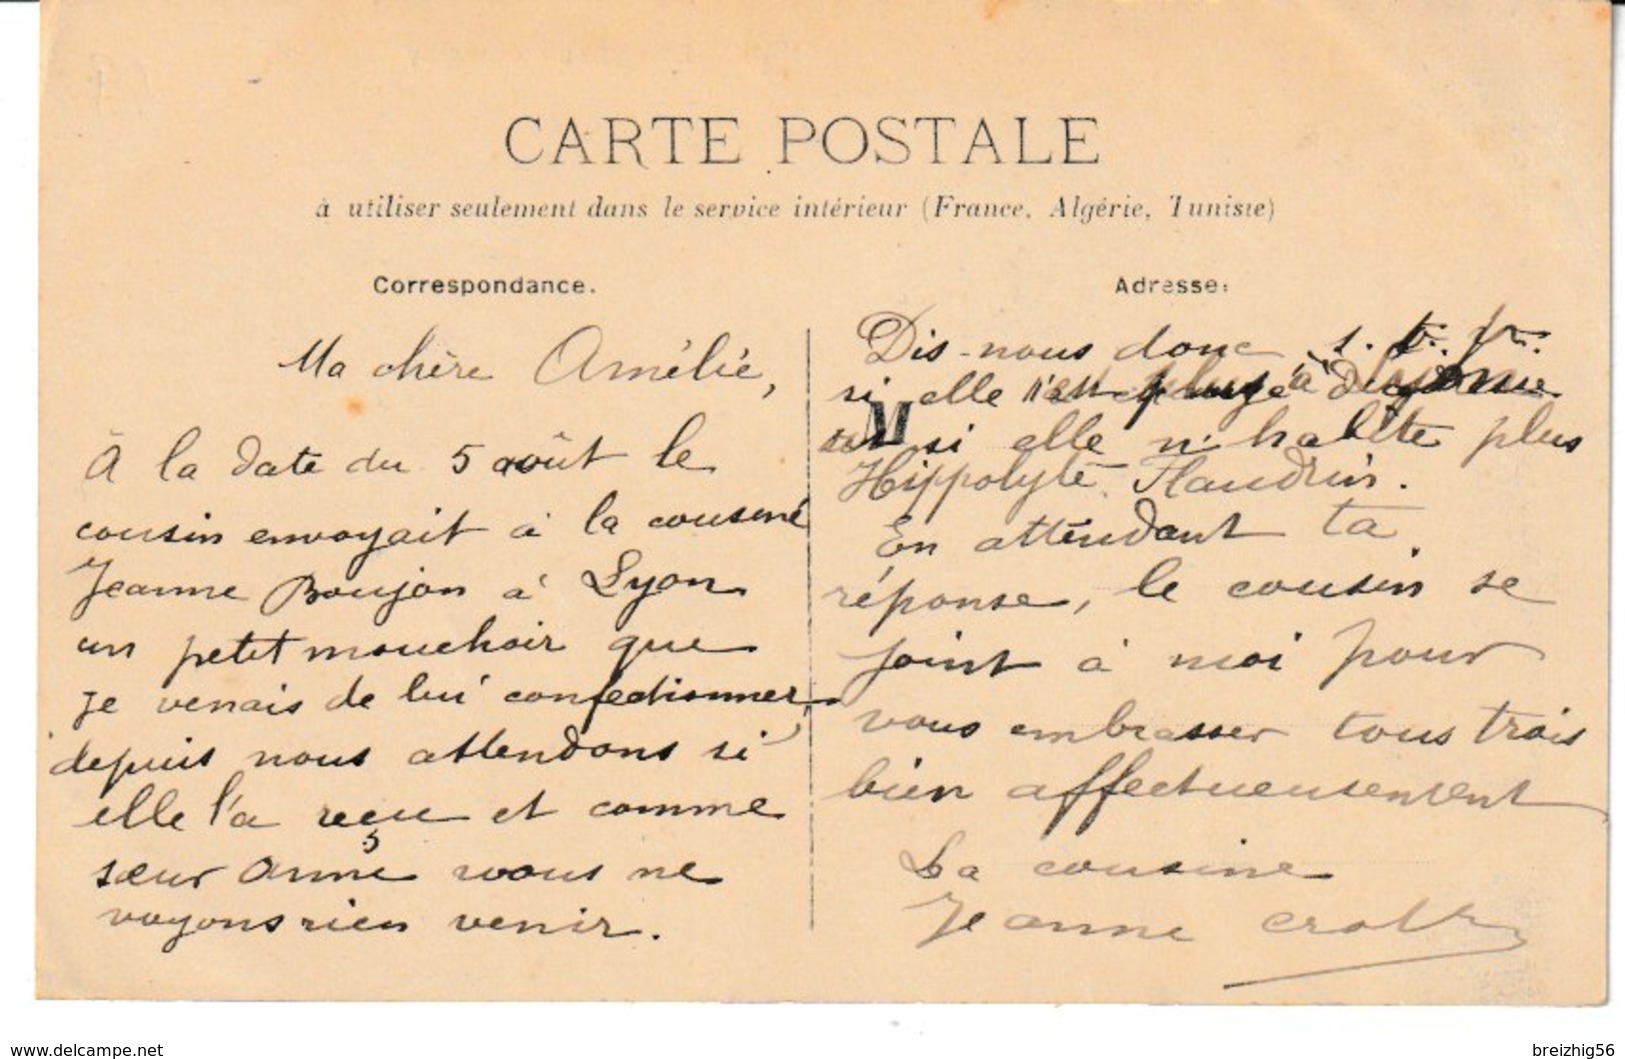 CARTE POSTALE
à utiliser seulement dans le service intérieur (France, Algérie, Tunisie)
Correspondance.
Ma chère Amélie,
À la date du 5 août le
cousin envoyait à la cousine
Jeanne Boujon à Lyon
un petit mouchoir que
je venais de lui confectionner,
depuis nous attendons si
elle l'a reçu et comme
sœur Anne nous ne
voyons rien venir.
Adresse:
Dis-nous donc s. t. p.
si elle n'est plus à
si elle n'habite plus
Hippolyte Flandrin.
En attendant ta
réponse, le cousin se
joint à moi pour
vous embrasser tous trois
bien affectueusement
La cousine
Jeanne
www.delcampe.net
breizhig56